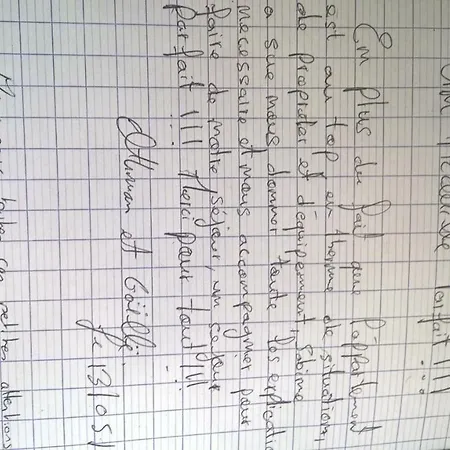 parfait !!!
En plus du fait que l'appartement
est au top en therme de situation,
de propreter et d'équipement, Sabine
a sue nous donner toute les explicatio
necessaire et nous accompagner pour
faire de notre séjour, un sejour
parfait !!! Merci pour tout !!!
et Gaëlle.
le 13/05/
petites attentions